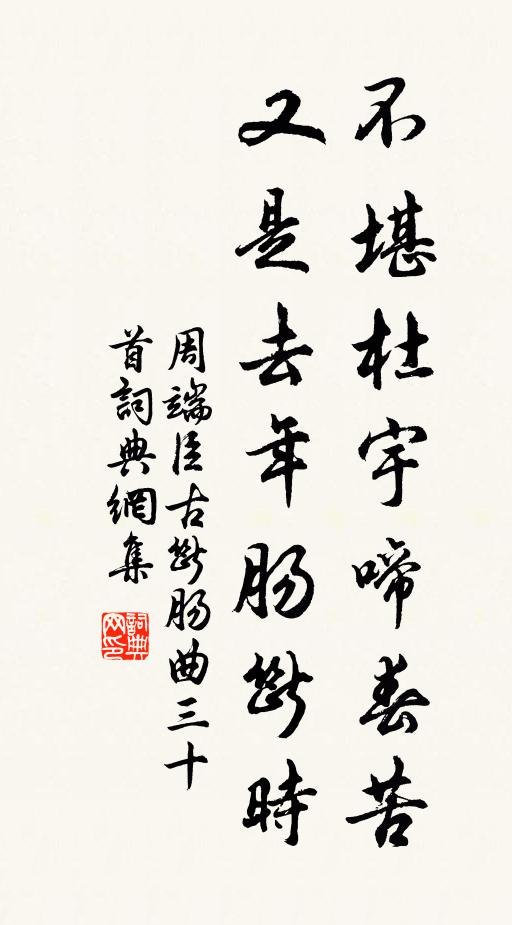 不堪杜宇啼春苦
又是去年腸斷時
周端臣古斷腸曲三十
首詞典網集
詞典
网印